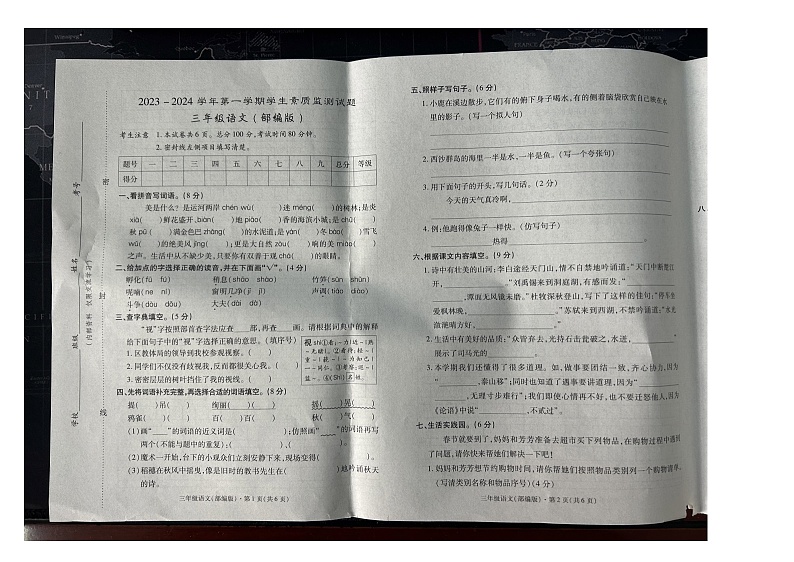 2023－2024学年第一学期学生素质监测试题
三年级语文（部编版）
考生注意 1.本试卷共6页。总分100分,考试时间80分钟。
2.密封线左侧项目填写清楚。
题号 一 二 三 四 五 六 七 八 九 总分 等级
得分
一、看拼音写词语。(8分)
美是什么？是运河两岸chén wù( )迷méng( )的树林;是炎
xià( )鲜花盛开,biàn( )地piāo( )香的海滨小城;是chū( )
秋pū( )满金色巴zhǎng( )的水泥道;是yán( )冬bào( )雪飞
wǔ( )的绝美风jǐng( );更是大自然zòu( )响的美miào( )
之声。生活中从不缺少美,只要你有双善于观chá( )的眼睛。
二、给加点的字选择正确的读音,并在下面画“√”。(4分)
孵化(fū fú) 稍息(shāo shào) 竹笋(sǔn shǔn)
呢喃(ne ní) 窗明几净(jī jǐ) 声调(tiáo diào)
斗争(dòu dǒu) 大夫(dài dà)
三、查字典填空。(5分)
“视”字按照部首查字法应查 部,再查 画。请根据词典中的解释
给下面句子中的“视”字选择正确的意思。(填序号)
1.区教体局的领导到我校参观视察。( )
2.同学们不仅没有歧视我,反而都很关心我。( )
3.密密层层的树叶挡住了我的视线。( )
四、先将词语补充完整,再选择合适的词语填空。(8分)
提( )吊( ) 绚丽( )( ) 摇( )晃( )
鸦雀( )( ) 百( )百( ) 秋( )气( )
(1)画“ ”的词语的近义词是( );仿照画“ ”的词语再写
两个(不能与题中的重复):( )、( )
(2)魔术一开始,台下的小观众们立刻安静下来,现场变得( )。
(3)稻穗在秋风中摇曳,像是旧时的教书先生在( )地吟诵秋天
的诗。
三年级语文(部编版)·第1页(共6页)
学校
班级
姓名
考号
密
封
线
五、照样子写句子。(6分)
1.小鹿在溪边散步,它们有的俯下身子喝水,有的侧着脑袋欣赏自己映在水
里的影子。(写一个拟人句)
2.西沙群岛的海里一半是水,一半是鱼。(写一个夸张句)
3.用下面句子的开头,写几句话。(2分)
今天的天气真冷啊,
4.例:他跑得像兔子一样快。(仿写句子)
热得 。
六、根据课文内容填空。(9分)
1.诗中有壮美的山河:李白途经天门山,情不自禁地吟诵道:“天门中断楚江
开, 。”刘禹锡来到洞庭湖,有感而发:“
,潭面无风镜未磨。”杜牧深秋登山,写下了这样的佳句:“停车坐
爱枫林晚, 。”苏轼来到西湖,不禁吟诵道:“水光
潋滟晴方好, 。”
2.生活中有美好的品质:“众皆弃去,光持石击瓮破之,水迸, ”
展示了司马光的 。
3.本学期我们还懂得了很多道理。如,做事要团结一致,齐心协力,因为
“ ,泰山移”;同时也知道了遇事要讲道理,因为“
,无理寸步难行”;我们即使心情再不好,也不要迁怒他人,因为
《论语》中说“ ,不贰过”。
七、生活实践园。(6分)
春节就要到了,妈妈和芳芳准备去超市买下列物品,在购物过程中遇到
了问题,请你快来帮她们解决一下吧!
1.妈妈和芳芳想节约购物时间,请你帮她们按照物品类别列一个购物清单。
(写清类别名称和物品序号)(4分)
三年级语文(部编版)·第2页(共6页)
八